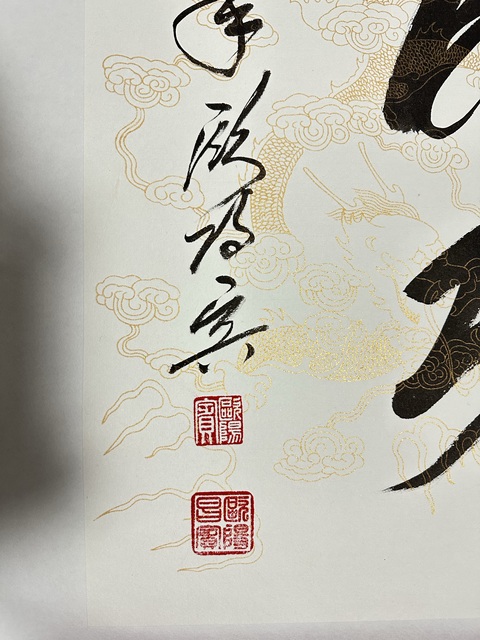 年欧阳宾
歐陽賓
歐陽